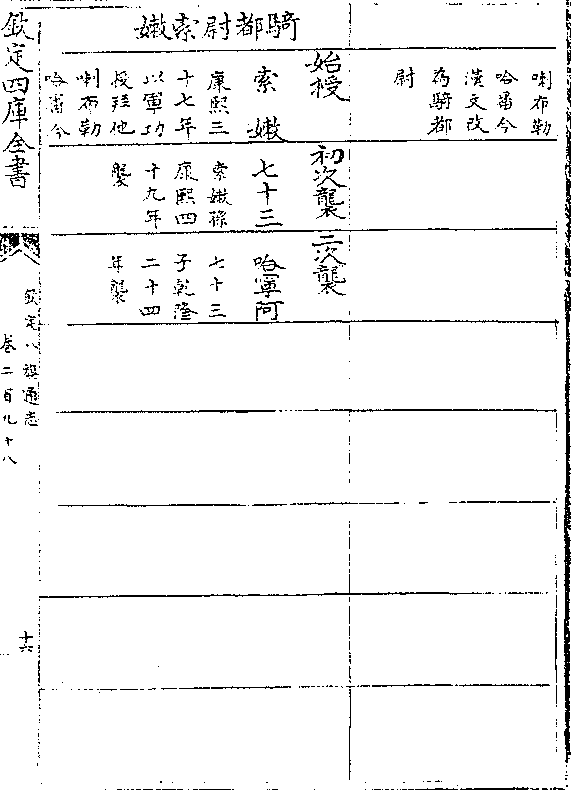 喇布勒
哈畨今
漢文改
為騎都
尉
騎都尉索嫩
始授
索嫩
康熙三
十七年
以軍功
授拜他
喇布勒
哈畨今
初次襲
七十三
索嫩孫
康熙四
十九年
襲
二次襲
哈寧阿
七十三
子乾隆
二十四
年襲
欽定四庫全書
欽定八旗通志
卷二百九十八
十六